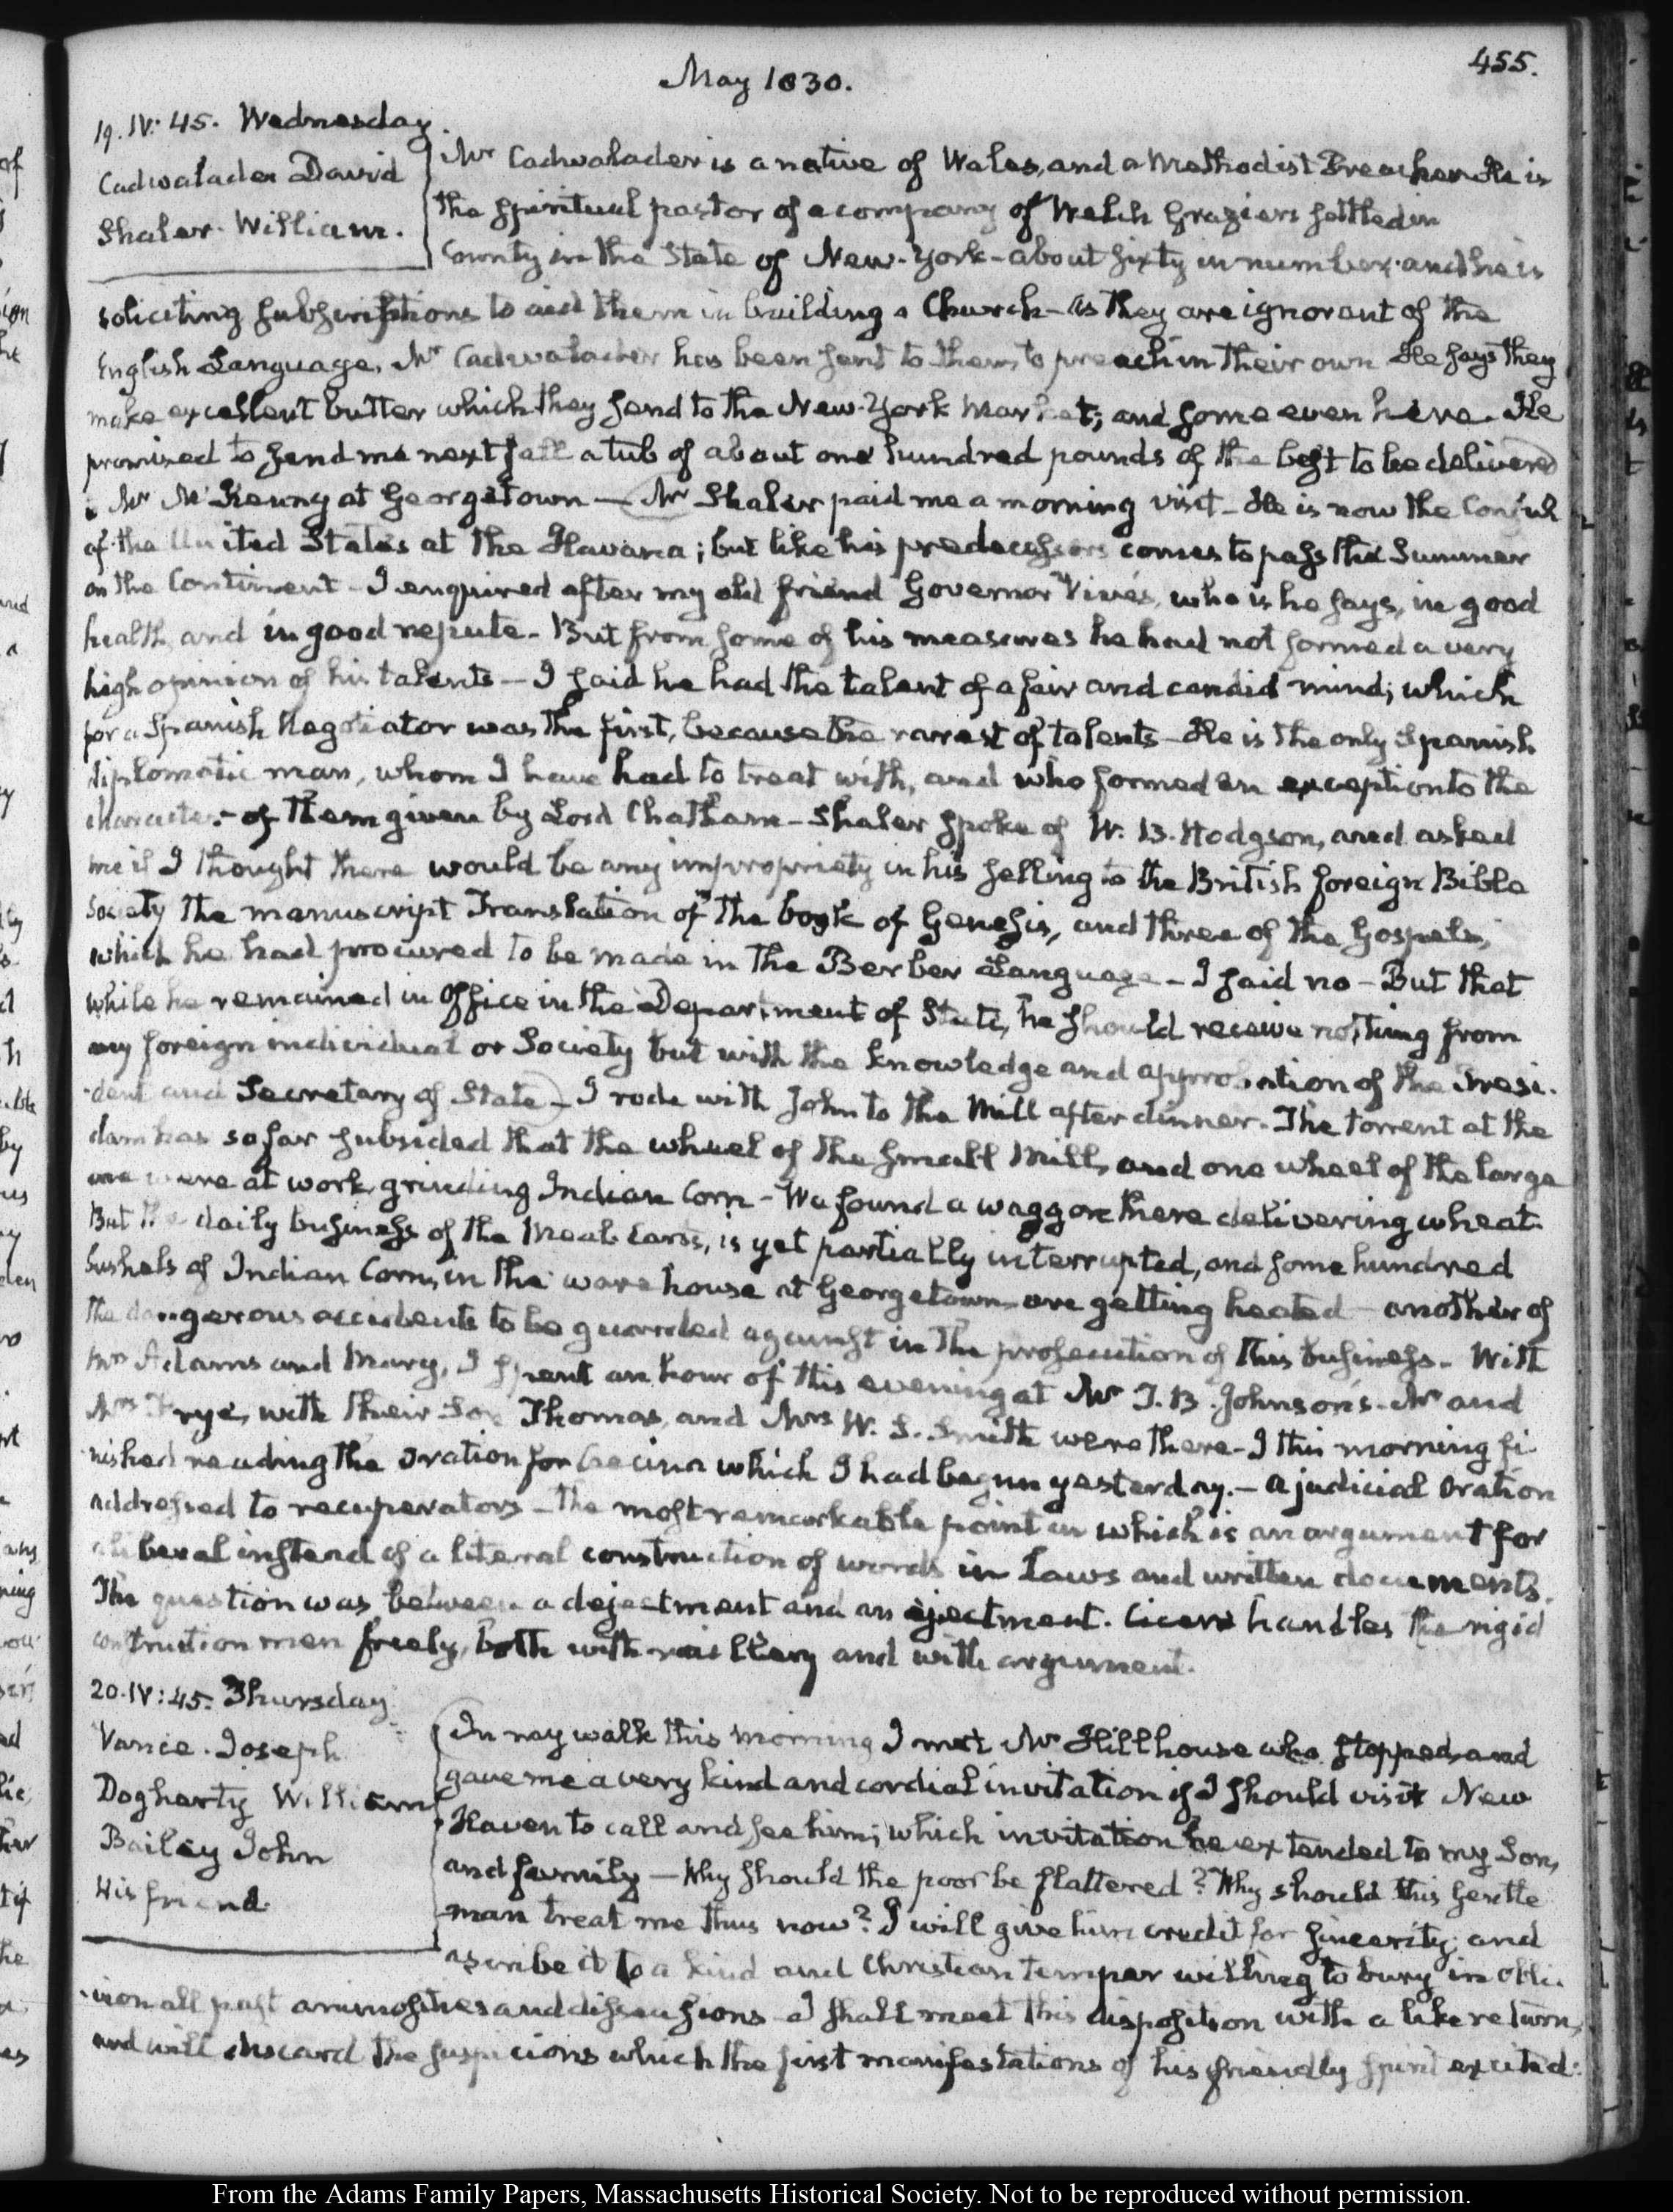 455.
May 1830.
19. IV: 45. Wednesday.
Cadwalader David
Shaler. William.
Mr Cadwalader is a native of Wales, and a Methodist Preacher. He is
the spiritual pastor of a company of Welch Graziers settled in
County in the State of New-York - about sixty in number. and he is
soliciting subscriptions to aid them in building a Church - as they are ignorant of the
English Language, Mr Cadwalader has been sent to them, to preach in their own He says they
make excellent butter which they send to the New-York Market; and some even here. He
promised to send me next fall a tub of about one hundred pounds of the best to be delivered
Mr McKenny at Georgetown — Mr Shaler paid me a morning visit - He is now the Consul
of the United States at the Havana; but like his predecessors comes to pass the Summer
on the Continent - I enquired after my old friend Governor Vivés, who is he says, in good
health, and in good repute - But from some of his measures he had not formed a very
high opinion of his talents — I said he had the talent of a fair and candid mind; which
for a Spanish Negotiator was the first, because the rarest of talents - He is the only Spanish
diplomatic man, whom I have had to treat with, and who formed an exception to the
character of them given by Lord Chatham - Shaler spoke of W. B. Hodgson, and asked
me if I thought there would be any impropriety in his selling to the British foreign Bible
Society the manuscript Translation of the book of Genesis, and three of the Gospels,
which he had procured to be made in the Berber Language - I said no - But that
while he remained in Office in the Department of State, he should receive nothing from
any foreign individual or Society but with the knowledge and approbation of the Presi-
dent and Secretary of State - I rode with John to the Mill after dinner. The torrent at the
dam has so far subsided that the wheel of the small Mill, and one wheel of the large
one were at work, grinding Indian Corn - We found a waggon there delivering wheat.
But the daily business of the Meal Carts, is yet partially interrupted, and some hundred
bushels of Indian Corn, in the ware house at Georgetown are getting heated - another of
the dangerous accidents to be guarded against in the prosecution of this business. With
Mrs Adams and Mary, I spent an hour of this evening at Mr T. B. Johnson's. Mr and
Mrs Frye, with their Son Thomas, and Mrs W. S. Smith were there - I this morning fi-
nished reading the Oration for Caecina which I had begun yesterday. — A judicial Oration
addressed to recuperators - The most remarkable point in which is an argument for
a liberal instead of a literal construction of words in Laws and written documents.
The question was between a dejectment and an ejectment. Cicero handles the rigid
construction men freely, both with raillery and with argument.
20. IV: 45. Thursday
Vance. Joseph
Dogharty William
Bailey John
His friend
In my walk this morning I met Mr Hillhouse who stopped, and
gave me a very kind and cordial invitation if I should visit New
Haven to call and see him; which invitation he extended to my Son,
and family — Why should the poor be flattered? Why should this Gentle
man treat me thus now? I will give him credit for sincerity, and
ascribe it to a kind and Christian temper willing to bury in obli-
vion all past animosities and dissensions - I shall meet this disposition with a like return,
and will discard the suspicions which the first manifestations of his friendly spirit excited.
From the Adams Family Papers, Massachusetts Historical Society. Not to be reproduced without permission.